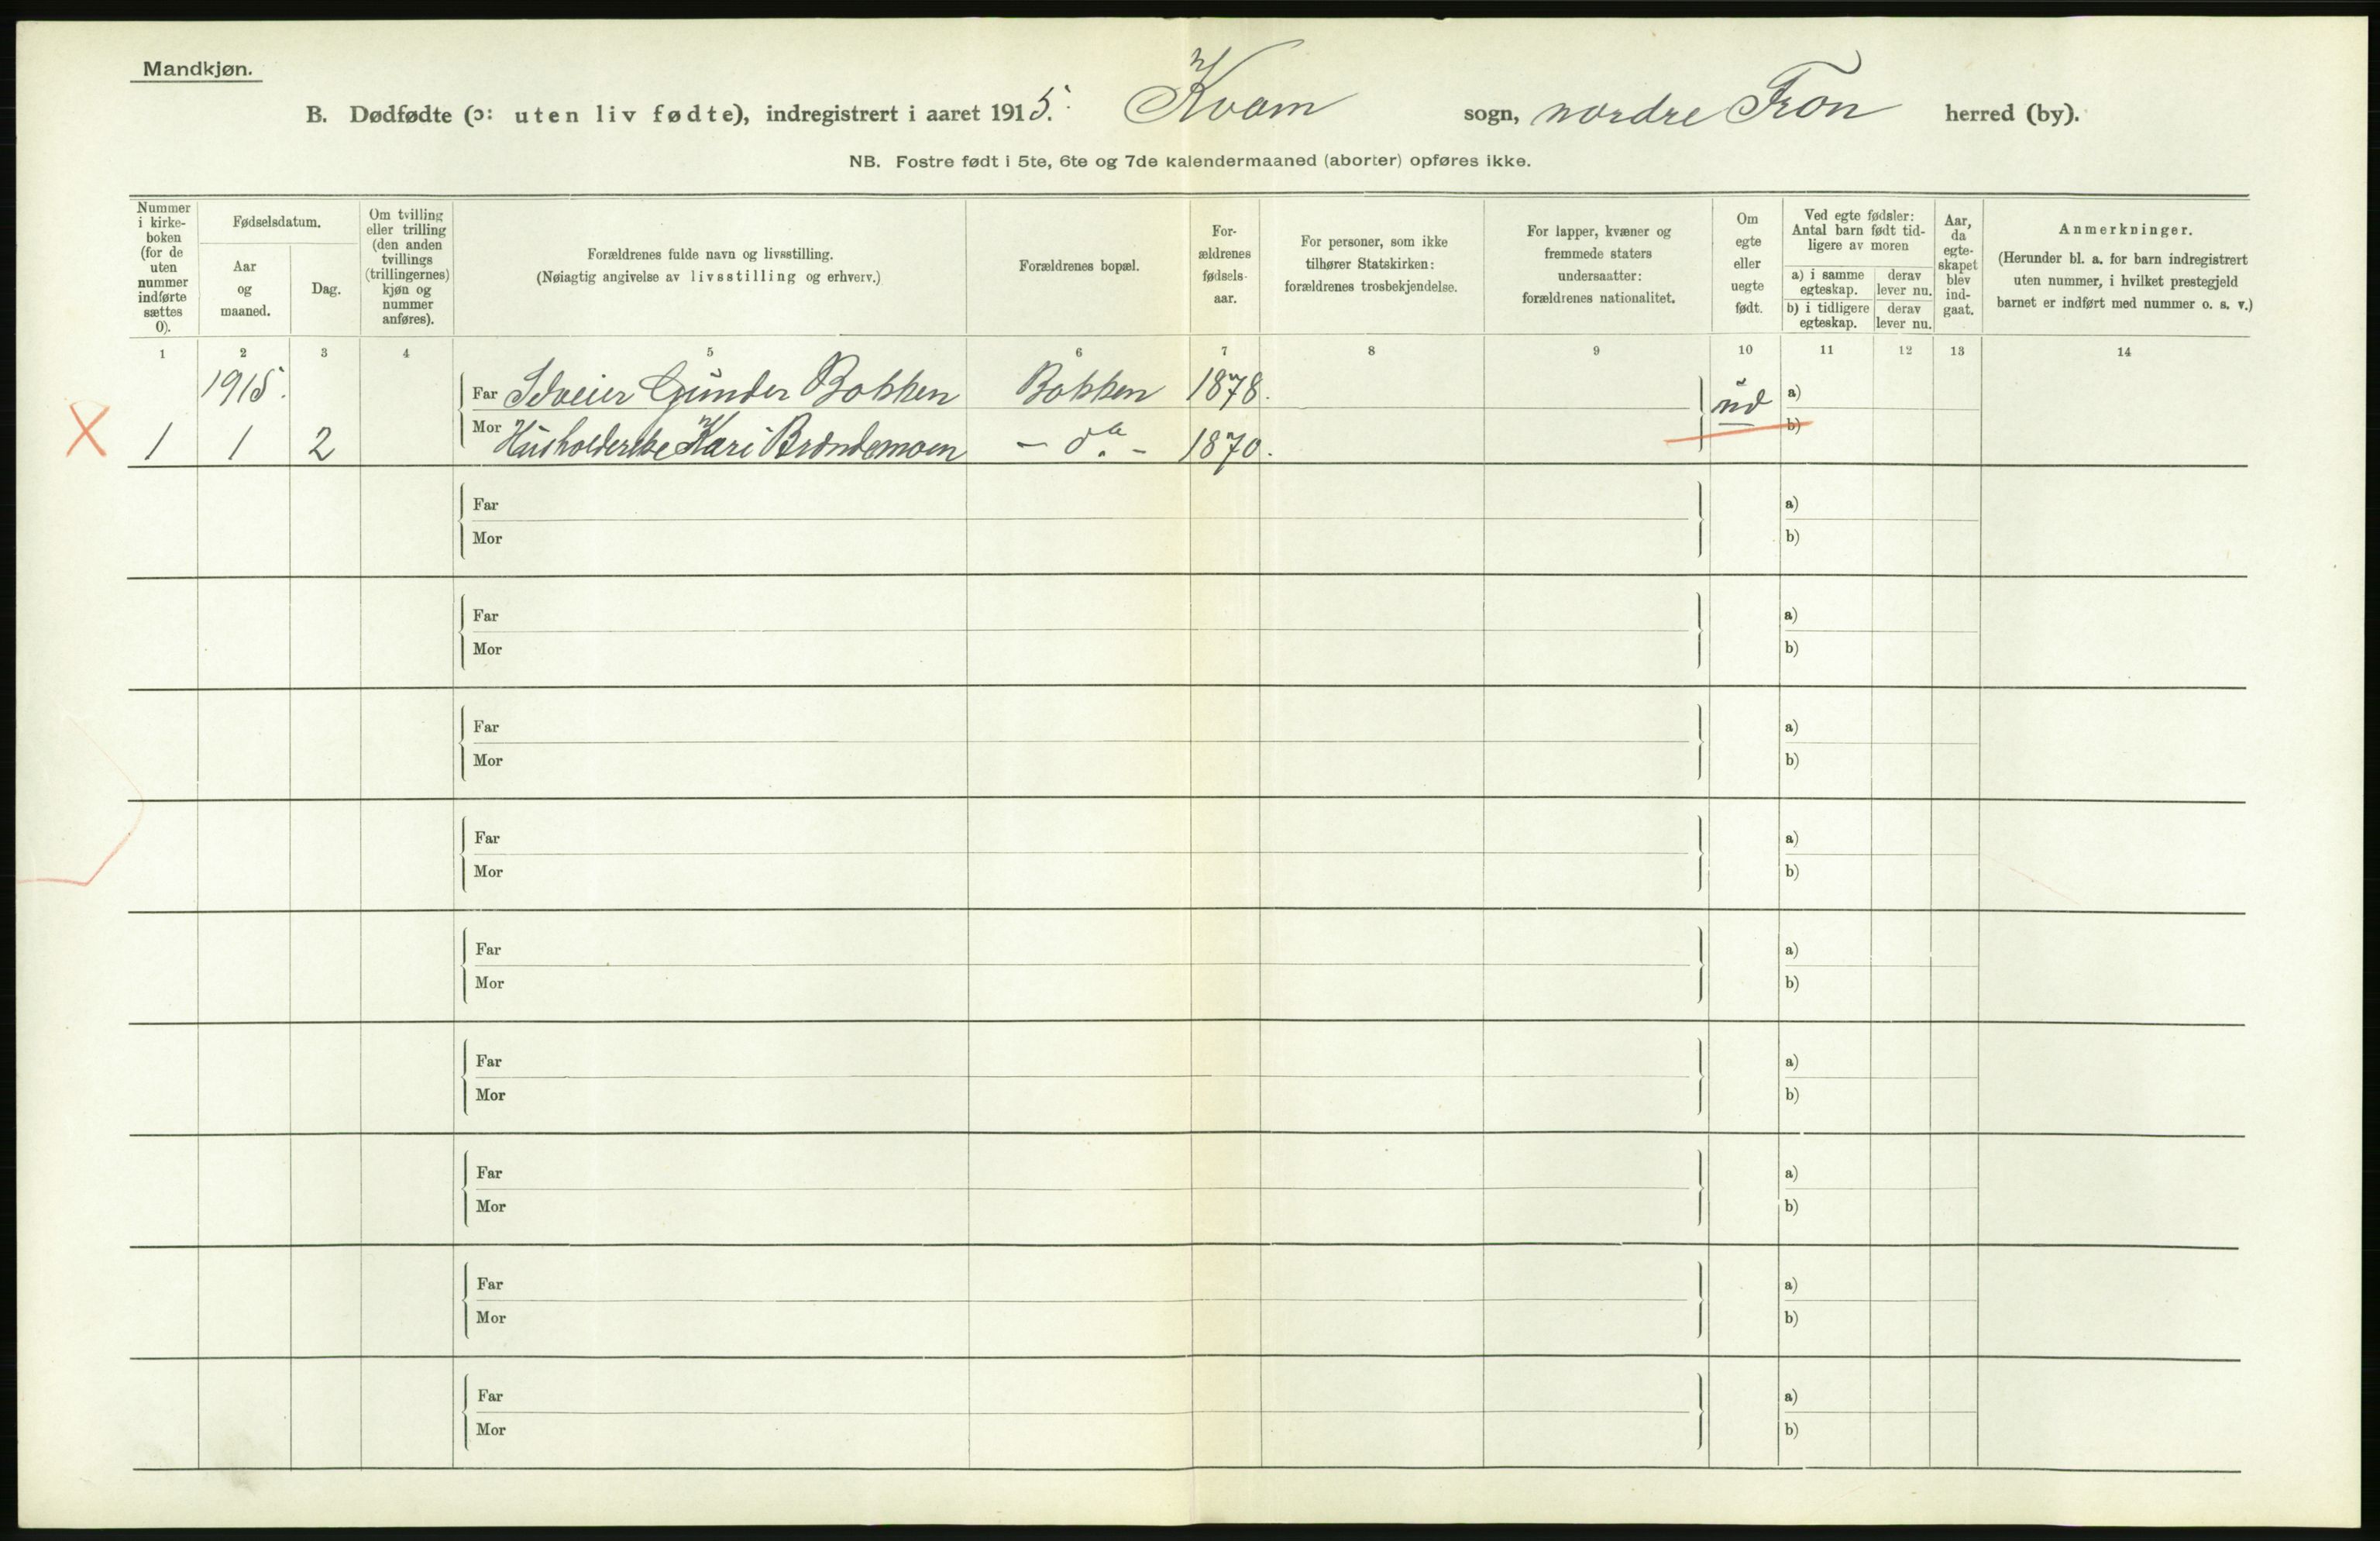 Mandkjøn.
B. Dødfødte (ɔ: uten liv fødte), indregistrert i aaret 1915. Kvam sogn, nordre Fron herred (by).
NB. Fostre født i 5te, 6te og 7de kalendermaaned (aborter) opføres ikke.
Nummer
i kirke-
boken
(for de
uten
nummer
indførte
sættes
0).
Fødselsdatum.
Aar
og
maaned.
Dag.
Om tvilling
eller trilling
(den anden
tvillings
(trillingernes)
kjøn og
nummer
anføres).
Forældrenes fulde navn og livsstilling.
(Nøiagtig angivelse av livsstilling og erhverv.)
Forældrenes bopæl.
For-
ældrenes
fødsels-
aar.
For personer, som ikke
tilhører Statskirken:
forældrenes trosbekjendelse.
For lapper, kvæner og
fremmede staters
undersaatter:
forældrenes nationalitet.
Om
egte
eller
uegte
født.
Ved egte fødsler:
Antal barn født tid-
ligere av moren
a) i samme
egteskap.
derav
lever nu.
b) i tidligere
egteskap.
derav
lever nu.
Aar,
da
egte-
skapet
blev
ind-
gaat.
Anmerkninger.
(Herunder bl. a. for barn indregistrert
uten nummer, i hvilket prestegjeld
barnet er indført med nummer o. s. v.)
1 2 3 4 5 6 7 8 9 10 11 12 13 14
1915. Far Selveier Gunder Bakken Bakken 1878. a)
1 1 2 Mor Husholderske Kari Brændemoen - do. - 1870. b)
Far a)
Mor b)
Far a)
Mor b)
Far a)
Mor b)
Far a)
Mor b)
Far a)
Mor b)
Far a)
Mor b)
Far a)
Mor b)
Far a)
Mor b)
Far a)
Mor b)